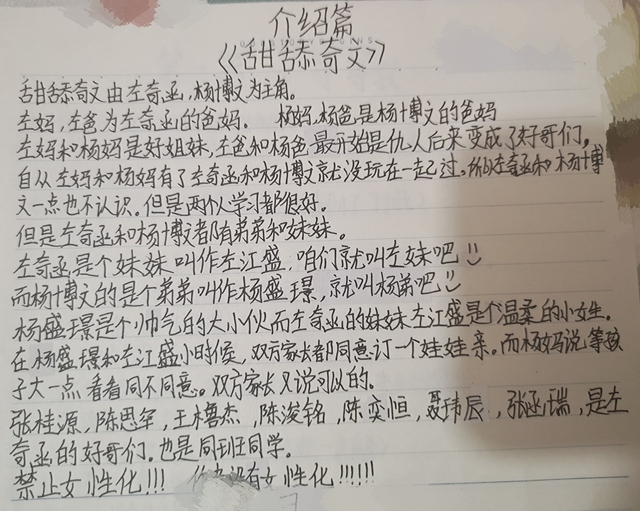 介绍篇
《甜舔奇文》
甜舔奇文由左奇函,杨博文为主角。
左妈,左爸为左奇函的爸妈. 杨妈,杨爸是杨博文的爸妈
左妈和杨妈是好姐妹,左爸和杨爸最开始是仇人后来变成了好哥们,
自从左妈和杨妈有了左奇函和杨博文就没玩在一起过,所以左奇函和杨博
文一点也不认识.但是两个人学习都很好.
但是左奇函和杨博文都有弟弟和妹妹。
左奇函是个妹妹叫作左江盛,咱们就叫左妹吧
而杨博文的是个弟弟叫作杨盛璟,就叫杨弟吧
杨盛璟是个帅气的大小伙而左奇函的妹妹左江盛是个温柔的小女生.
在杨盛璟和左江盛小时候,双方家长都同意订一个娃娃亲。而杨妈说等孩
子大一点看看同不同意。双方家长又说可以的.
张桂源,陈思罕,王橹杰,陈浚铭,陈奕恒,聂玮辰,张函瑞,是左
奇函的好哥们.也是同班同学.
禁止女性化!!! 没有女性化!!!!!!